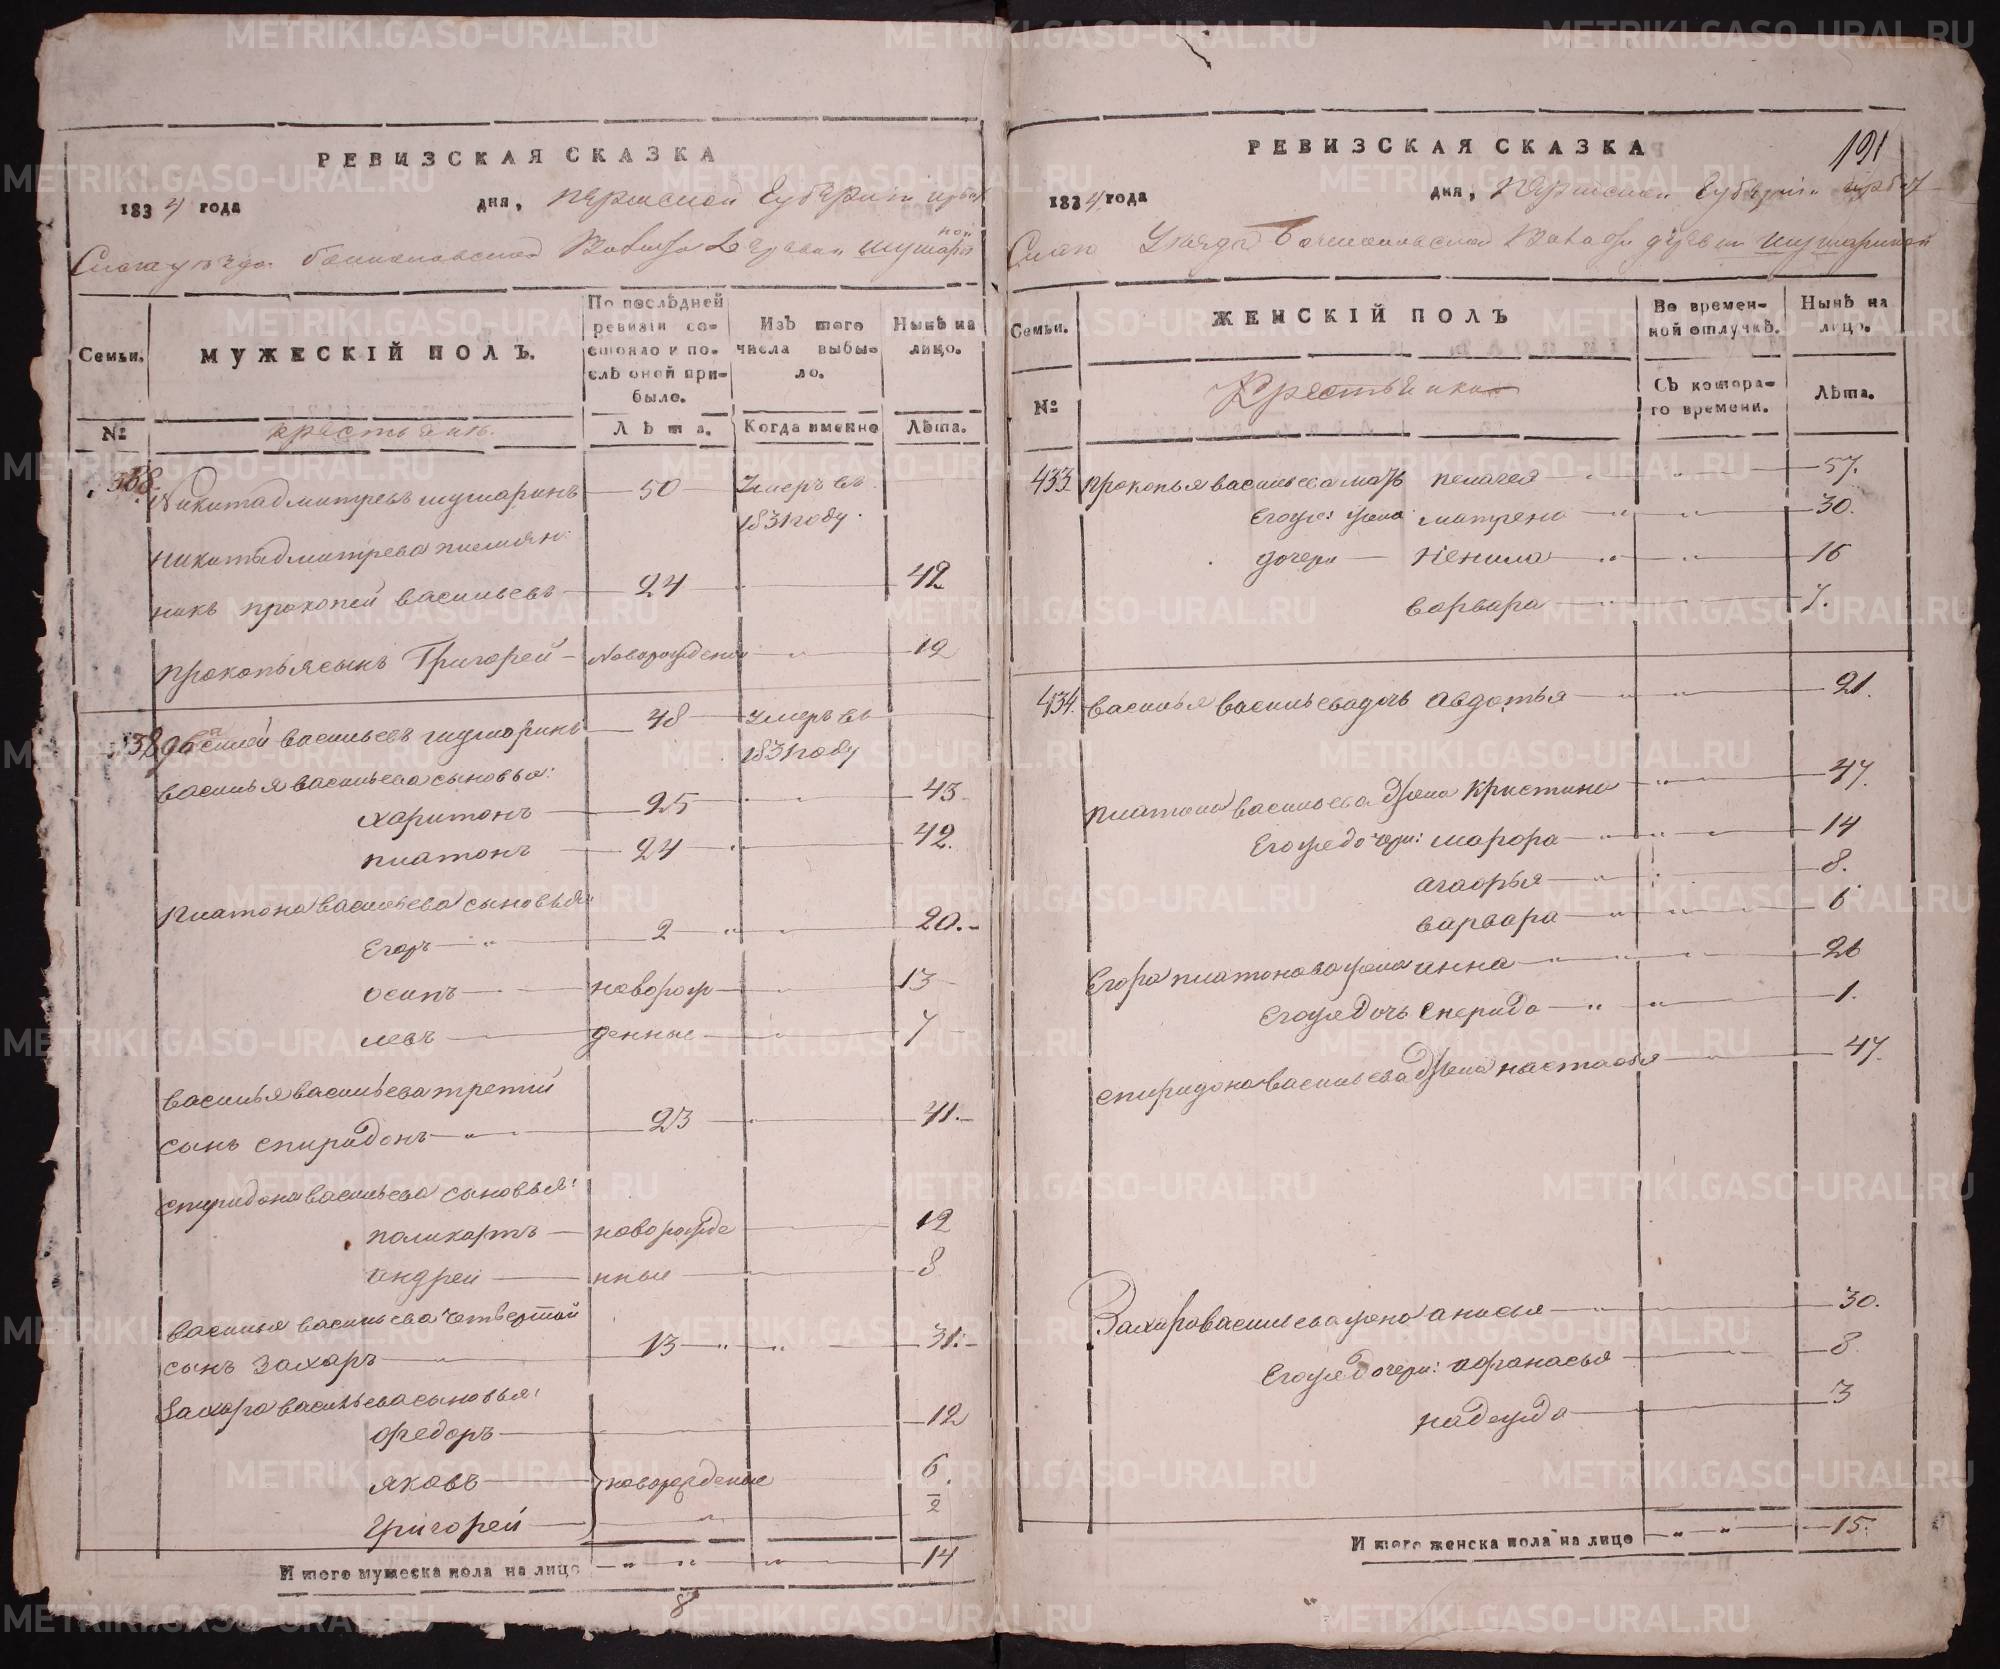 РЕВИЗСКАЯ СКАЗКА
1834 года дня, пермской Губернїи ирбит
Скаго уезда Волости деревни шушари
ной
Семьи.
МУЖЕСКІЙ ПОЛЪ.
По послѣдней ревизіи состояло и послѣ оной прибыло.
Изъ того числа выбыло.
Нынѣ на лицо.
№
крестьяне
Лѣта.
Когда именно
Лѣта.
368. Никита дмитревъ шушаринъ 50 Умеръ въ
1831 году.
никиты дмитрева племян:
никъ прокопей васильевъ 24 42
прокопья сынъ Григорей Новорожденой 19
василей васильевъ шушаринъ 48 Умеръ въ
1831 году
василья васильева сыновья:
харитонъ 25 43
платонъ 24 42.
Платона васильева сыновья
Егоръ 2 20.
осипъ новорож 13
левъ денные 7
василья васильева третій
сынъ спиридонъ 23 41.
спиридона васильева сыновья:
поликарпъ новорожде 12
андреи нные 8
васильи васильева четвертой
сынъ Захаръ 13 31.
Захара васильева сыновья:
федоръ 12
яковъ новорожденые 6
григорей 2
И того мужеска пола на лицо 14
8
РЕВИЗСКАЯ СКАЗКА
191
1834 года дня, Пермскои Губернїи ирбит
Скаго Уезда Волости деревни шушариной
Семьи.
ЖЕНСКІЙ ПОЛЪ
Во временной отлучкѣ.
Нынѣ на лицо.
№
Крестьянки
Съ котораго времени.
Лѣта.
433 прокопья васильева мать пелагея 57.
Егоже жена матрена 30.
дочери Ненила 16
варвара 7.
434. васильи васильева дочь авдотья 21.
платона васильева жена кристина 47.
Егоже дочери: марфа 14
агафья 8.
варвара 6
Егора платонова жена анна 26
Егоже дочь 1.
спиридона васильева жена настасья 47.
Захара васильева жена анисья 30.
Егоже дочери: афанасья 8
надежда 3
И того женска пола на лицо 15.
METRIKI.GASO-URAL.RU